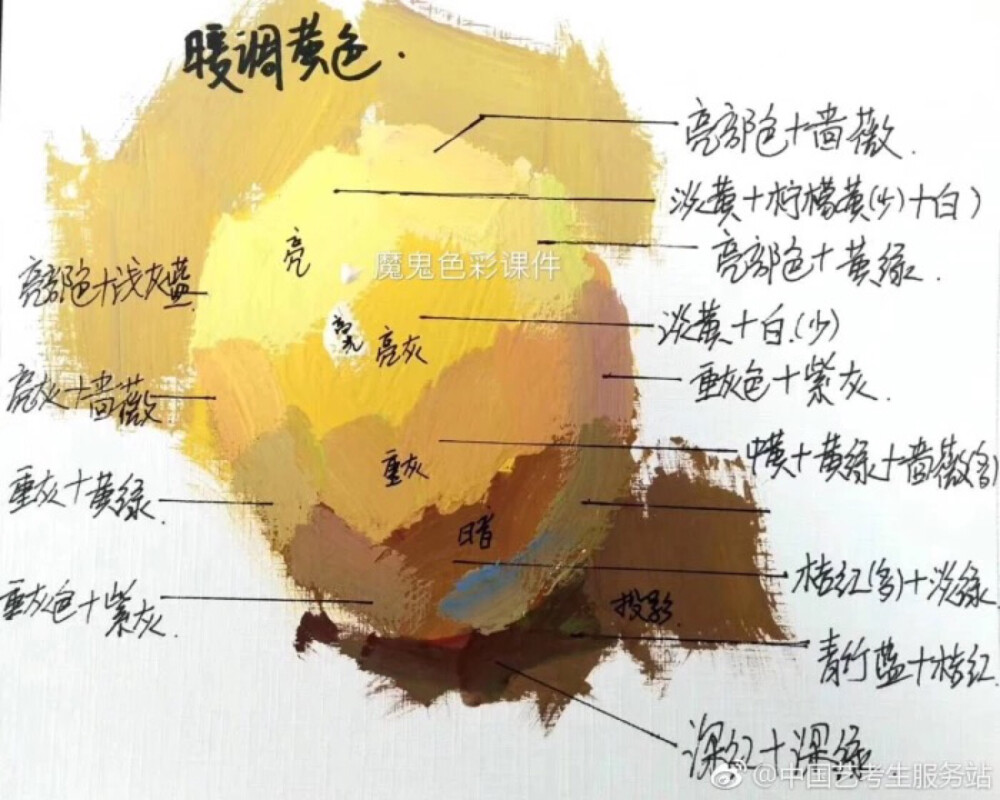 暖调黄色.
亮部色+蔷薇.
淡黄+柠檬黄(少)+白)
亮部色+黄绿.
亮
魔鬼色彩课件
亮部色+浅灰蓝.
淡黄+白.(少)
高光
亮灰
重灰色+紫灰.
亮灰+蔷薇
中黄+黄绿+蔷薇(多)
重灰
重灰+黄绿.
暗
桔红(多)+淡绿.
重灰色+紫灰.
投影.
青竹蓝+桔红.
深红+深绿.
@中国艺考生服务站